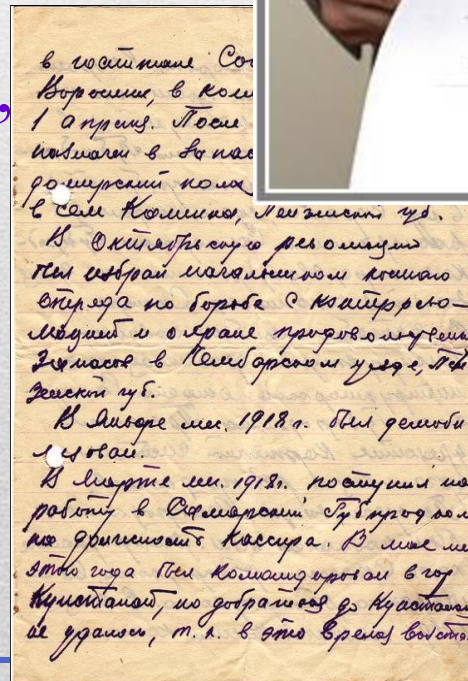 в госпитале Сог
Воронеж, в ком
1 апреля. После
назначен в запас
домерский полк,
в село Каменка, Пензенской губ.
В Октябрьскую революцию
был избран начальником конного
отряда по борьбе с контррево-
люцией и охране продовольствен
запасов в Чембарском уезде, Пен
зенской губ.
В январе мес. 1918 г. был демоби
лизован.
В марте мес. 1918г. поступил на
работу в Самарский Губпродком
на должность кассира. В мае ме
этого года был командирован в гор
Кустанай, но добраться до Кустаная
не удалось, т. к. в это время восста